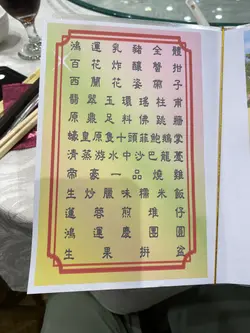 鴻運乳豬全體
百花炸釀蟹拑
西蘭花姿帶子
翡翠玉環瑤柱甫
原盅足料佛跳牆
蠔皇原隻十頭鮑鵝掌
清蒸游水中沙巴龍躉
帝豪一品燒雞
生炒臘味糯米飯
蓮蓉煎堆仔
鴻運慶團圓
生果拼盆